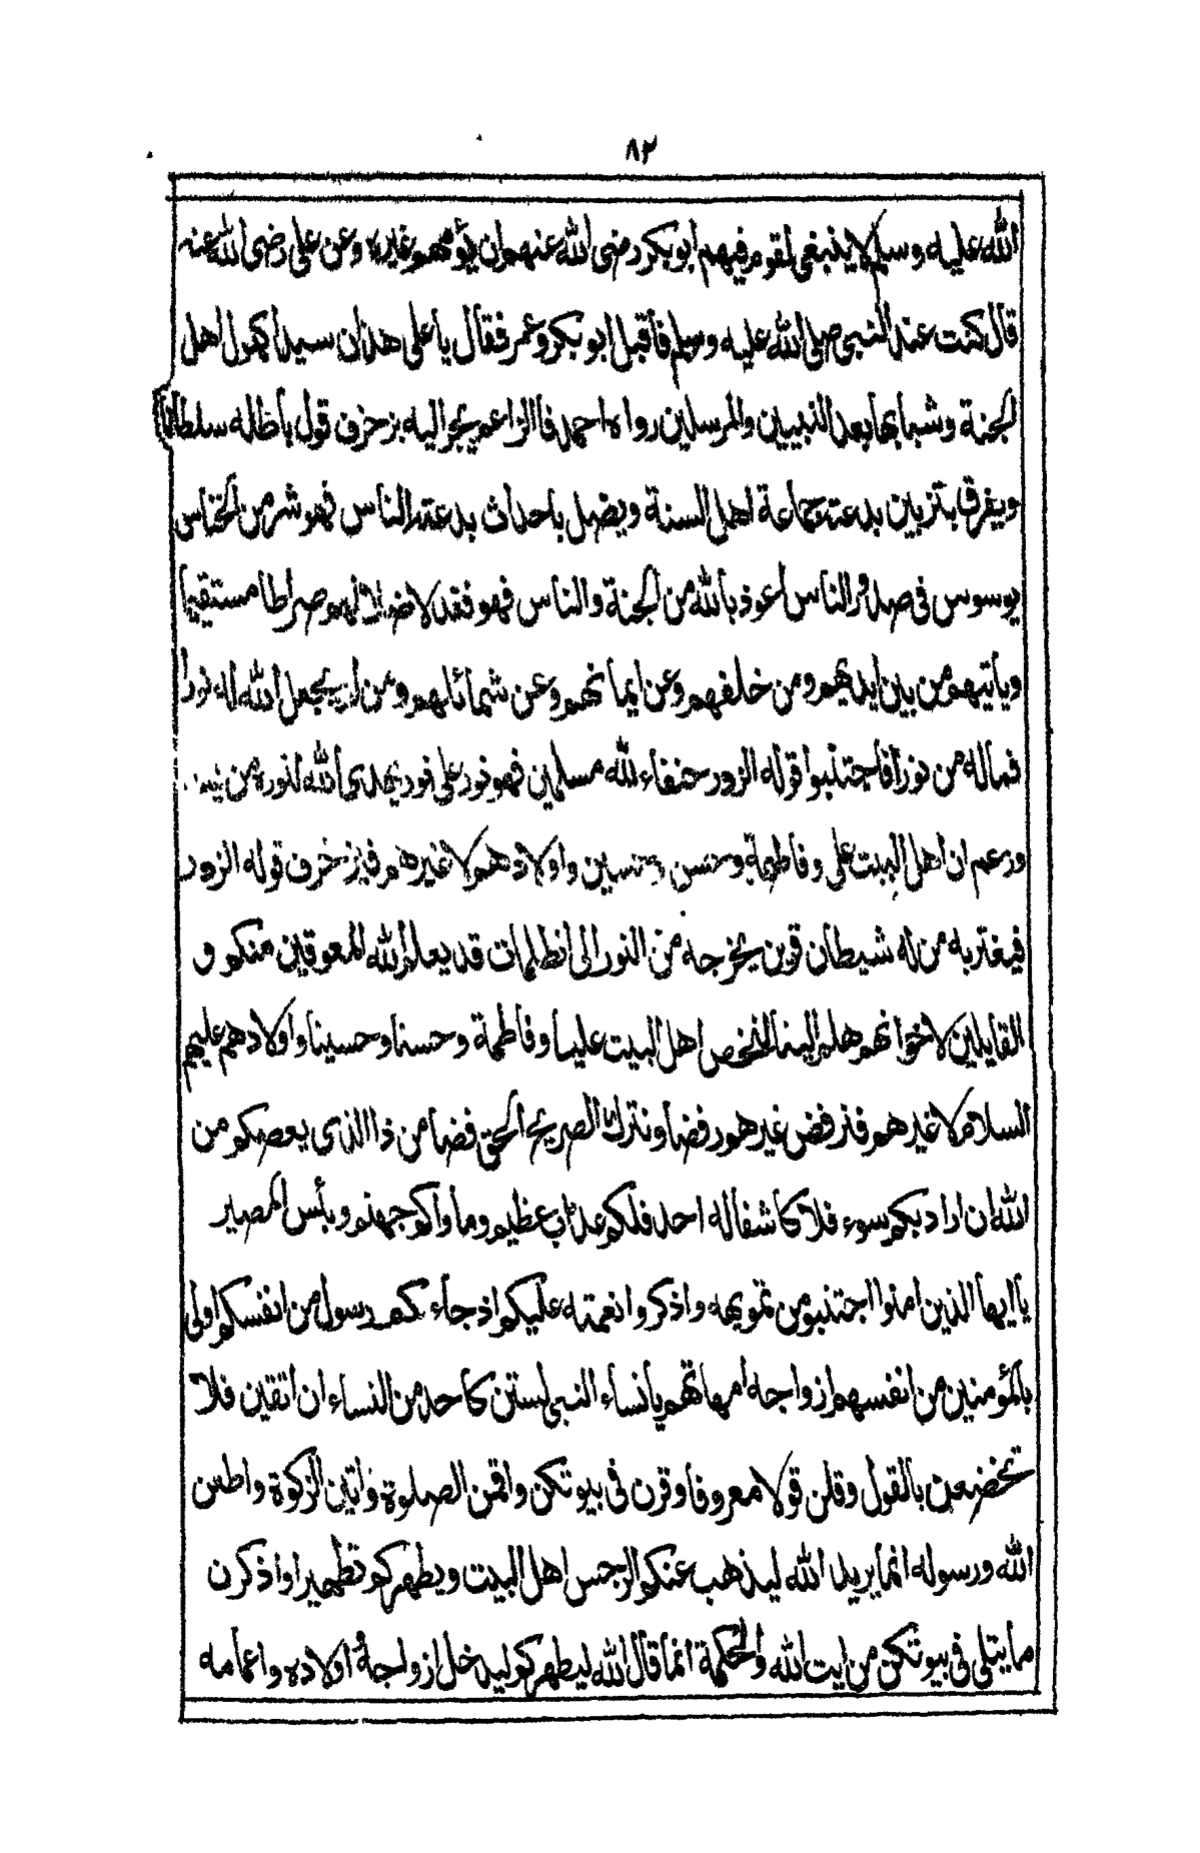 ٨٢
الله عليه وسلم لا ينبغى لقوم فيهم ابو بكر رضى الله عنهم ان يؤمهم غيره وعن على رضى الله عنه
قال كنت عند النبى صلى الله عليه وسلم فاقبل ابو بكر وعمر فقال يا على هذان سيدا كهول اهل
الجنة وشبابها بعد النبيين والمرسلين رواه احمد فالزاعم يجر اليه بزخرف قول باطله سلطانا
ويفرق بتزيين بدعته جماعة اهل السنة ويضل باحداث بدعته الناس فهو شر من الخناس
يوسوس فى صدور الناس اعوذ بالله من الجنة والناس فهو فقد لاضلالهم صراطا مستقيما
وياتيهم من بين ايديهم ومن خلفهم وعن ايمانهم وعن شمائلهم ومن لم يجعل الله له نورا
فماله من نور فاجتنبوا قوله الزور حنفاء لله مسلمين فهو نور على نور يهدى الله لنوره من
وزعم ان اهل البيت على وفاطمة وحسن وحسين واولادهم لا غيرهم فيزخرف قوله الزور
فيغتر به من له شيطان قرين يخرجه من النور الى الظلمات قد يعلم الله المعوقين منكم و
القايلين لاخوانهم هلم الينا لنخص اهل البيت عليا وفاطمة وحسنا وحسينا واولادهم عليهم
السلام لا غيرهم فنرفض غيرهم رفضا ونترك الصريح الحق فضا من ذا الذى يعصمكم من
الله ان اراد بكم سوء فلا كاشفا له احد فلكم عذاب عظيم وماواكم جهنم وبأس المصير
يا ايها الذين امنوا اجتنبوا من تمويهه واذكروا نعمته عليكم اذ جاءكم رسول من انفسكم اولى
بالمؤمنين من انفسهم ازواجه امهاتهم يا نساء النبى لستن كاحد من النساء ان اتقين فلا
تخضعن بالقول وقلن قولا معروفا وقرن فى بيوتكن واقمن الصلوة واتين الزكوة واطعن
الله ورسوله انما يريد الله ليذهب عنكم الرجس اهل البيت ويطهركم تطهيرا واذكرن
ما يتلى فى بيوتكن من ايت الله والحكمة انما قال الله ليطهركم ليدخل ازواجه اولاده واعمامه